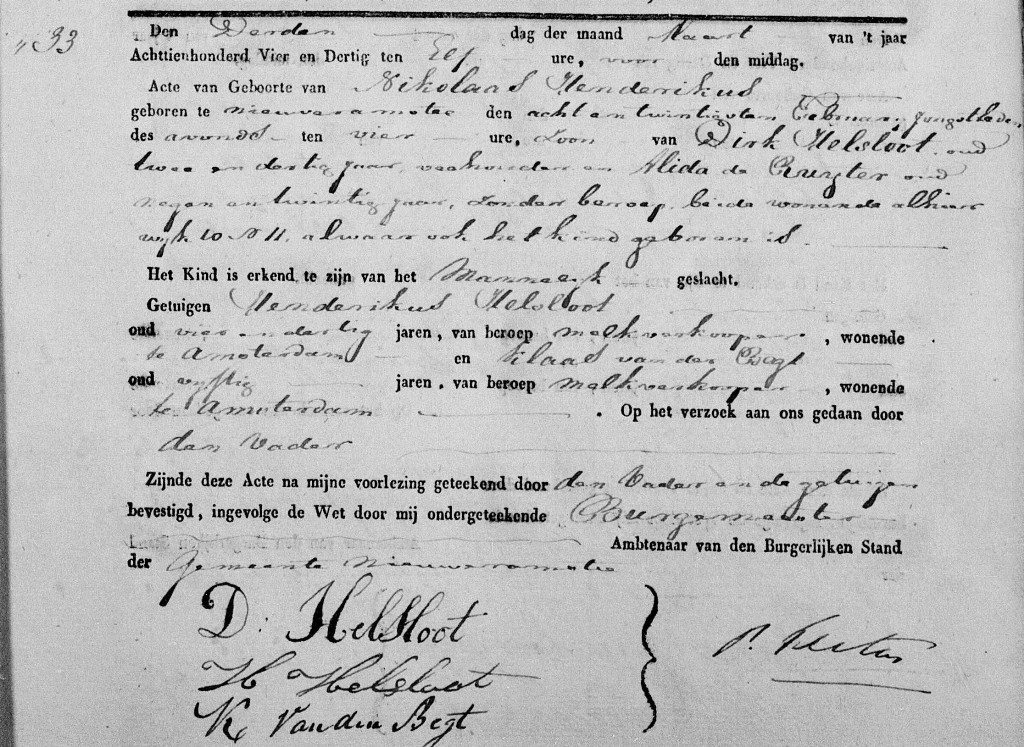 33
Den Derden dag der maand Maart van 't jaar
Achttienhonderd Vier en Dertig ten Elf ure, voor den middag.
Acte van Geboorte van Nikolaas Henderikus
geboren te Nieuweramstel den acht en twintigsten Februarij jongstleden
des avonds ten vier ure, Zoon van Dirk Helsloot oud
twee en dertig jaar, veehouder en Alida de Ruyter oud
negen en twintig jaar, zonder beroep, beide wonende alhier
wijk 10 N 11, alwaar ook het kind geboren is.
Het Kind is erkend te zijn van het Mannelijk geslacht.
Getuigen Henderikus Helsloot
oud vier en dertig jaren, van beroep melkverkooper, wonende
te Amsterdam en Klaas van der Begt
oud vijftig jaren, van beroep melkverkooper, wonende
te Amsterdam. Op het verzoek aan ons gedaan door
den Vader
Zijnde deze Acte na mijne voorlezing geteekend door den Vader en de getuigen
bevestigd, ingevolge de Wet door mij ondergeteekende Burgemeester
Ambtenaar van den Burgerlijken Stand
der Gemeente Nieuweramstel
D. Helsloot
H Helsloot
K Van den Begt